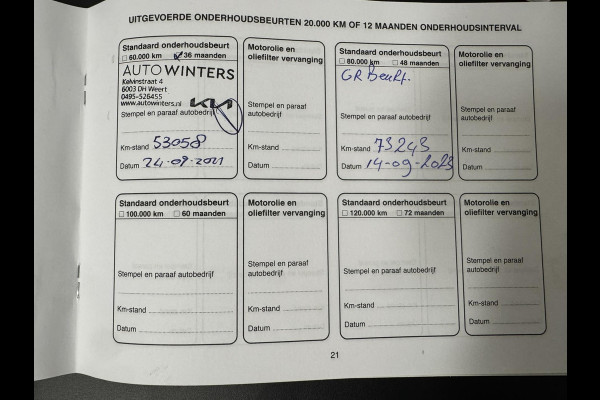 UITGEVOERDE ONDERHOUDSBEURTEN 20.000 KM OF 12 MAANDEN ONDERHOUDSINTERVAL
Standaard onderhoudsbeurt
60.000 km 36 maanden
AUTO WINTERS
Kelvinstraat 4
6003 DH Weert
0495-526455
www.autowinters.nl
KIA
Stempel en paraaf autobedrijf
Km-stand 53058
Datum 24-09-2021
Motorolie en
oliefilter vervanging
Stempel en paraaf
autobedrijf
Km-stand
Datum
Standaard onderhoudsbeurt
80.000 km 48 maanden
GR Beurt.
Stempel en paraaf autobedrijf
Km-stand 73243
Datum 14-09-2023
Motorolie en
oliefilter vervanging
Stempel en paraaf
autobedrijf
Km-stand
Datum
Standaard onderhoudsbeurt
100.000 km 60 maanden
Stempel en paraaf autobedrijf
Km-stand
Datum
Motorolie en
oliefilter vervanging
Stempel en paraaf
autobedrijf
Km-stand
Datum
Standaard onderhoudsbeurt
120.000 km 72 maanden
Stempel en paraaf autobedrijf
Km-stand
Datum
Motorolie en
oliefilter vervanging
Stempel en paraaf
autobedrijf
Km-stand
Datum
21